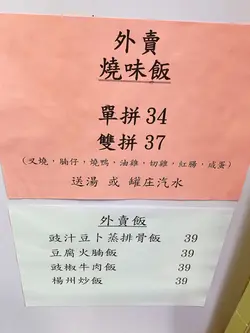 外賣
燒味飯
單拼 34
雙拼 37
(叉燒，腩仔，燒鴨，油雞，切雞，紅腸，咸蛋)
送湯 或 罐庄汽水
外賣飯
豉汁豆卜蒸排骨飯 39
豆腐火腩飯 39
豉椒牛肉飯 39
楊州炒飯 39